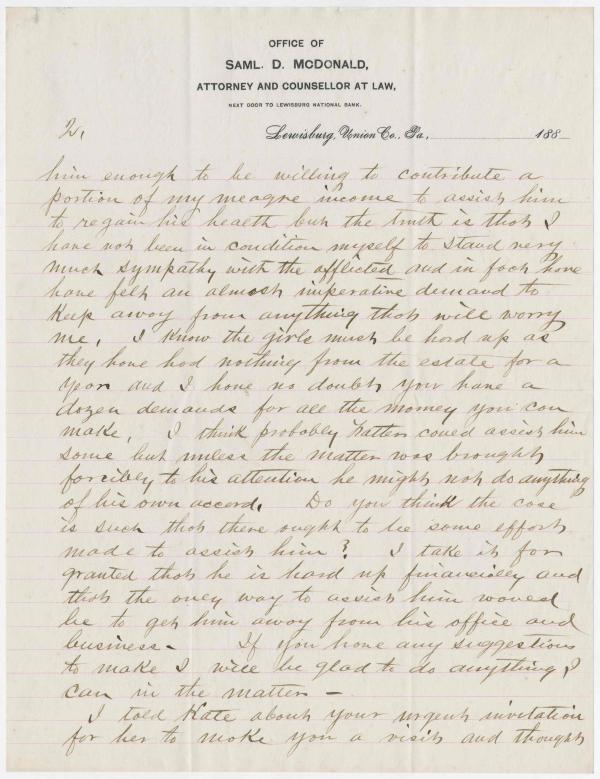 OFFICE OF
SAML. D. McDONALD,
ATTORNEY AND COUNSELLOR AT LAW,
NEXT DOOR TO LEWISBURG NATIONAL BANK.
2, Lewisburg, Union Co., Pa., 188
him enough to be willing to contribute a
portion of my meagre income to assist him
to regain his health but the truth is that I
have not been in condition myself to stand very
much sympathy with the afflicted and in fact have
have felt an almost imperative demand to
keep away from anything that will worry
me, I know the girls must be hard up as
they have had nothing from the estate for a
year and I have no doubt you have a
dozen demands for all the money you can
make, I think probably could assist him
some but unless the matter was brought
forcibly to his attention he might not do anything
of his own accord, Do you think the case
is such that there ought to be some effort
made to assist him? I take it for
granted that he is hard up financially and
that the only way to assist him would
be to get him away from his office and
business - If you have any suggestions
to make I will be glad to do anything I
can in the matter —
I told Kate about your urgent invitation
for her to make you a visit and thought